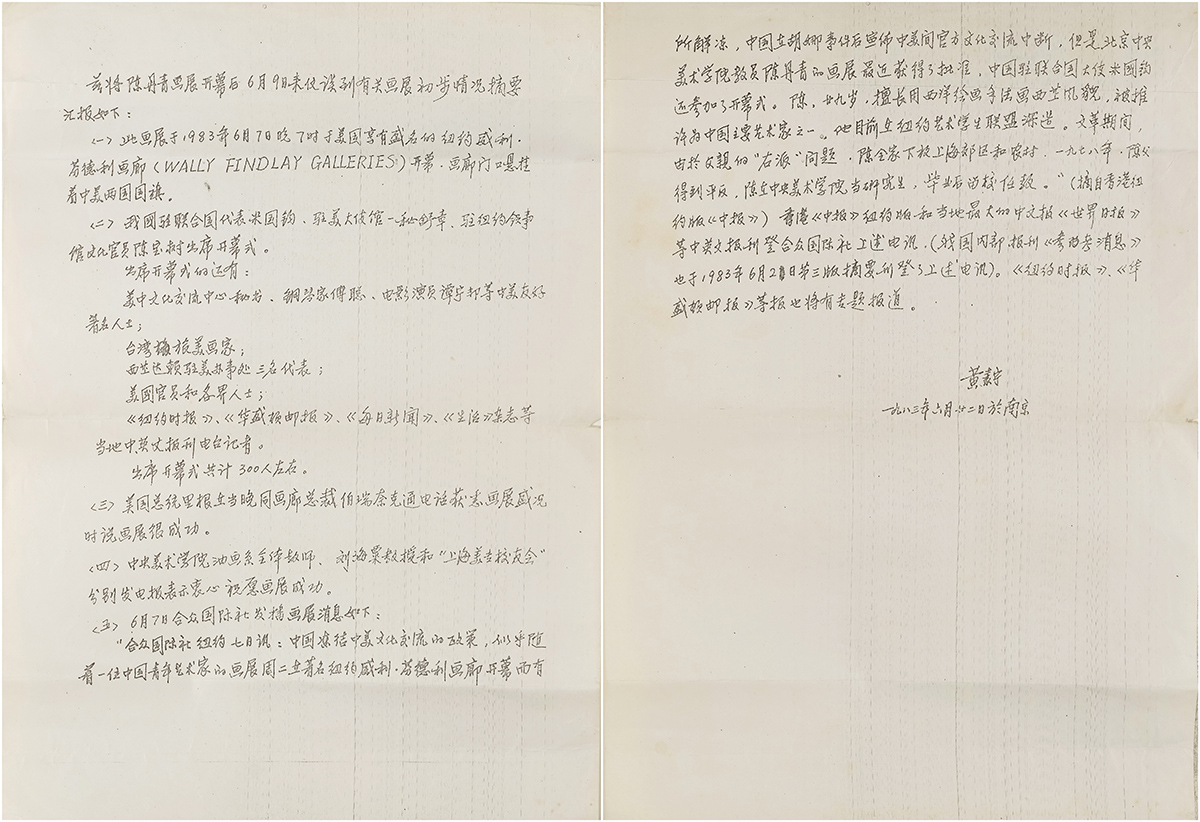 兹将陈丹青画展开幕后6月9日来仪谈到有关画展初步情况摘要
汇报如下：
(一)、此画展于1983年6月7日晚7时于美国享有盛名的纽约威利·
芬德利画廊(WALLY FINDLAY GALLERIES.)开幕,画廊门口悬挂
着中美两国国旗。
(二)、我國驻联合国代表米国钧、驻美大使馆一秘舒章、驻纽约领事
馆文化官员陈宝树出席开幕式。
出席开幕式的还有:
美中文化交流中心秘书、钢琴家傅聪、电影演员谭宁邦等中美友好
著名人士;
台湾旅美画家;
西兰达赖驻美办事处三名代表;
美國官员和各界人士;
《纽约时报》、《华盛顿邮报》、《每日新闻》、《生活》杂志等
当地中英文报刊电台记者。
出席开幕式共计300人左右。
(三)美国总统里根在当晚同画廊总裁伯瑞奈克通电话获悉画展盛况
时说画展很成功。
(四)中央美术学院油画系全体教师、刘海粟教授和“上海美专校友会”
分别发电报表示衷心祝愿画展成功。
(五)6月7日合众国际社发播画展消息如下:
“合众国际社纽约七日讯:中国冻结中美文化交流的政策,似乎随
着一位中国青年艺术家的画展周二在著名纽约威利·芬德利画廊开幕而有
所解冻,中国在胡娜事件后宣佈中美间官方文化交流中断,但是北京中央
美术学院教员陈丹青的画展最近获得了批准,中国驻联合国大使米国钧
还参加了开幕式。陈,廿九岁,擅长用西洋绘画手法画西兰风貌,被推
许为中国主要艺术家之一。他目前在纽约艺术学生联盟深造。文革期间,
由於父親的“右派”问题,陈全家下放上海郊区和农村,一九七八年,陈父
得到平反,陈在中央美术学院当研究生,毕业后留校任教。”(摘自香港纽
约版《中报》)香港《中报》纽约版和当地最大的中文报《世界日报》
等中英文报刊登合众国际社上述电讯,(我国内部报刊《参考消息》
也于1983年6月2日第三版摘要刊登了上述电讯)。《纽约时报》、《华
盛顿邮报》等报也将有专题报道。
黄素宁
一九八三年六月廿二日於南京